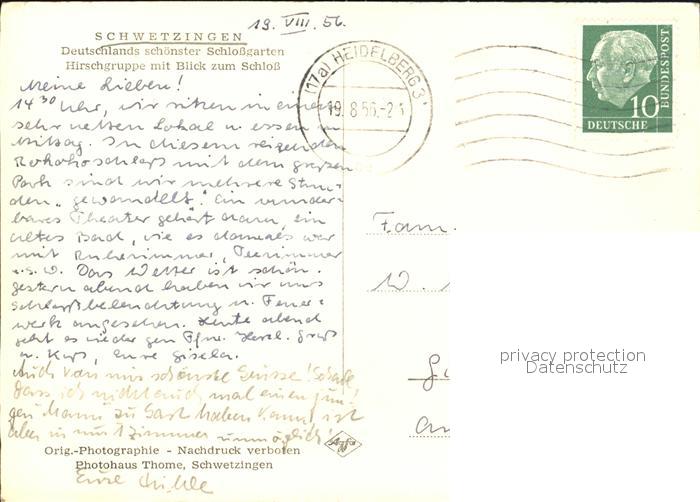 19. VIII. 56.
SCHWETZINGEN
Deutschlands schönster Schloßgarten
Hirschgruppe mit Blick zum Schloß
Meine Lieben!
14³⁰ Uhr, wir sitzen in einem
sehr netten Lokal u. essen zu
Mittag. In diesem reizenden
Rokokoschloß mit dem großen
Park sind wir mehrere Stun-
den „gewandelt". Ein wunder-
bares Theater gehört dazu, ein
altes Bad, wie es damals war
mit Ruhezimmer, Teezimmer
u.s.w. Das Wetter ist schön.
gestern abend haben wir uns
Schloßbeleuchtung u. Feuer-
werk angesehen. Heute abend
geht es wieder gen Herzl. Gruß
u. Kuß, eure Gisela.
Auch von mir schönste Grüsse! Schade
dass ich nicht auch mal einen
Mann zu Gast haben kann, ist
aber in nur 1 Zimmer unmöglich!
Eure
Orig.-Photographie - Nachdruck verboten
Photohaus Thome, Schwetzingen
Agfa
(17a) HEIDELBERG 3
19.8.56.-2
10
DEUTSCHE
BUNDESPOST
Fam.
W.
privacy protection
Datenschutz